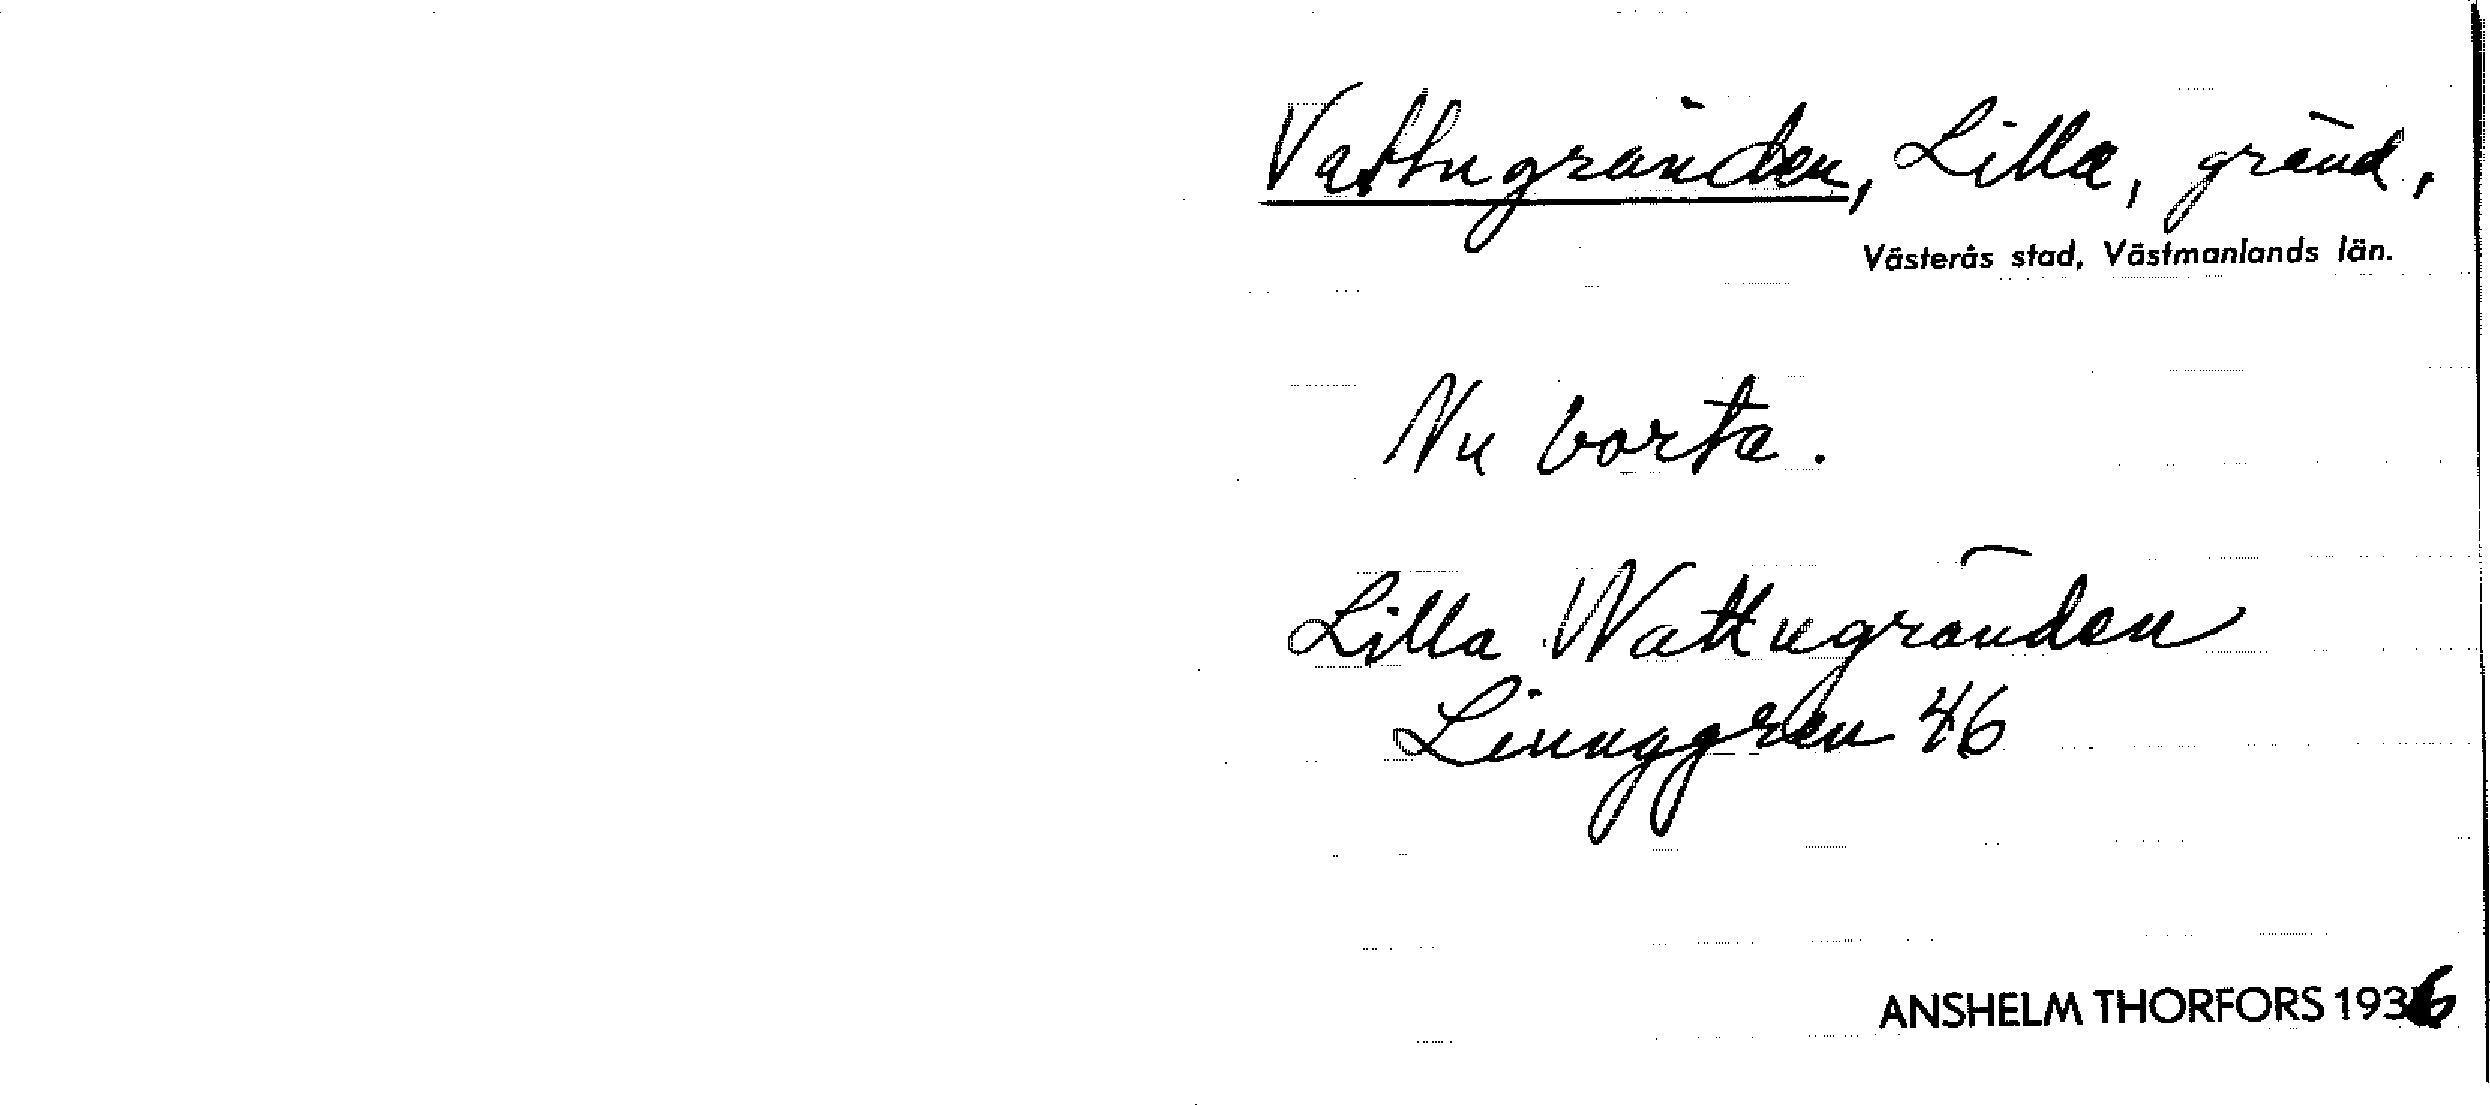 Vattugränden, Lilla, gränd,
Västerås stad, Västmanlands län.
Nu borta.
Lilla Wattugränden
Linnggren 46
ANSHELM THORFORS 1936